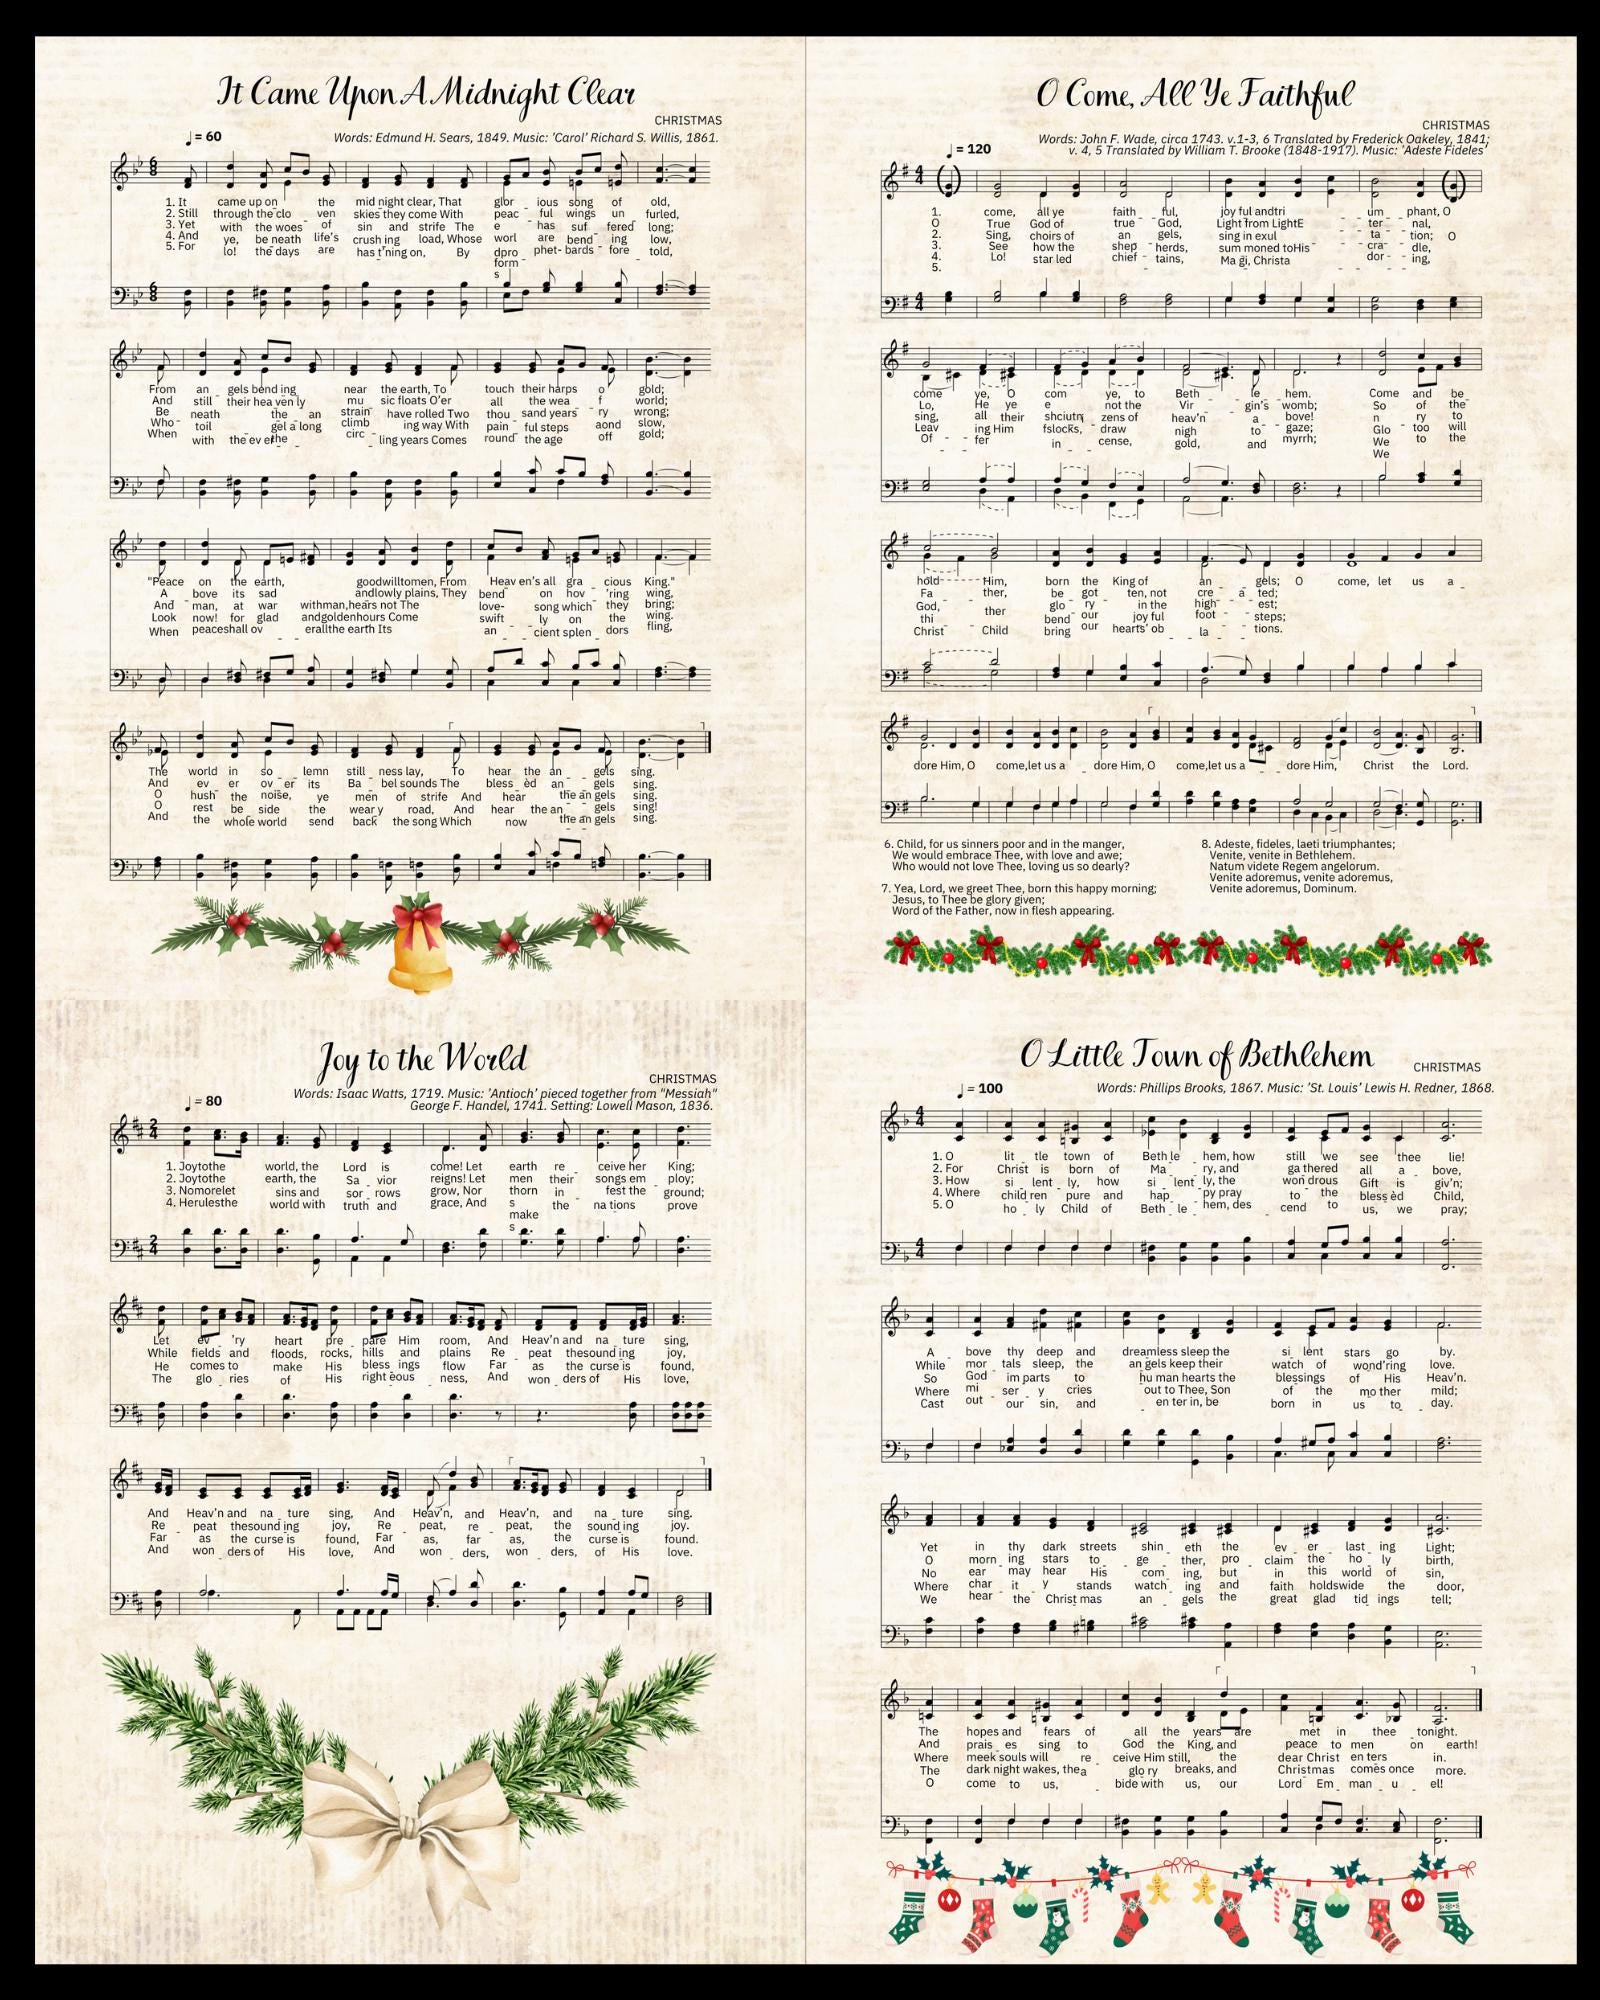 It Came Upon A Midnight Clear
CHRISTMAS
= 60
Words: Edmund H. Sears, 1849. Music: 'Carol' Richard S. Willis, 1861.
1. It came up on the mid night clear, That glor _ ious song of old,
2. Still through the clo ven skies they come With peac _ ful wings un furled,
3. Yet with the woes _ of sin and strife The e has suf _ fered long;
4. And ye, be neath life's crush ing load, Whose worl are bend _ ing low,
5. For lo! the days are has t'ning on, By dpro phet - bards _ fore told,
form
s
From an gels bend ing near the earth, To touch their harps o gold;
And still their hea ven ly mu sic floats O'er all the wea f world;
Be neath the an strain have rolled Two thou sand years ry wrong;
Who toil gel a long climb ing way With pain ful steps aond slow,
When with the ev er the circ ling years Comes round the age off gold;
"Peace on the earth, goodwilltomen, From Heav en's all gra cious King."
A bove its sad andlowly plains, They bend on hov 'ring wing,
And man, at war withman,hears not The love- song which they bring;
Look now! for glad andgoldenhours Come swift ly on the wing.
When peaceshall ov erallthe earth Its an cient splen dors fling,
The world in so lemn still ness lay, To hear the an gels sing.
And ev er ov er its Ba bel sounds The bless èd an gels sing.
O hush the noise, ye men of strife And hear the an gels sing.
O rest be side the wear y road, And hear the an gels sing!
And the whole world send back the song Which now the an gels sing.
O Come, All Ye Faithful
CHRISTMAS
Words: John F. Wade, circa 1743. v.1-3, 6 Translated by Frederick Oakeley, 1841;
= 120
v. 4, 5 Translated by William T. Brooke (1848-1917). Music: 'Adeste Fideles'
1. come, all ye faith ful, joy ful andtri um phant, O
O True God of true God, Light from LightE ter nal,
2. Sing, choirs of an gels, sing in exul ta tion; O
3. See how the shep herds, sum moned toHis cra dle,
4. Lo! star led chief tains, Ma gi, Christa dor ing,
5.
come ye, O com ye, to Beth le hem. Come and be
Lo, He ye e not the Vir gin's womb; So of the
sing, all their shciutn zens of heav'n a bove! n ry to
Leav ing Him fslocks, draw nigh to gaze; Glo too will
Of fer in cense, gold, and myrrh; We to the
We
hold Him, born the King of an gels; O come, let us a
Fa ther, be got ten, not cre a ted;
God, ther glo ry in the high est;
thi bend our joy ful foot steps;
Christ Child bring our hearts' ob la tions.
dore Him, O come,let us a dore Him, O come,let us a dore Him, Christ the Lord.
6. Child, for us sinners poor and in the manger,
We would embrace Thee, with love and awe;
Who would not love Thee, loving us so dearly?
7. Yea, Lord, we greet Thee, born this happy morning;
Jesus, to Thee be glory given;
Word of the Father, now in flesh appearing.
8. Adeste, fideles, laeti triumphantes;
Venite, venite in Bethlehem.
Natum videte Regem angelorum.
Venite adoremus, venite adoremus,
Venite adoremus, Dominum.
Joy to the World
CHRISTMAS
= 80
Words: Isaac Watts, 1719. Music: 'Antioch' pieced together from "Messiah"
George F. Handel, 1741. Setting: Lowell Mason, 1836.
1. Joytothe world, the Lord is come! Let earth re ceive her King;
2. Joytothe earth, the Sa vior reigns! Let men their songs em ploy;
3. Nomorelet sins and sor rows grow, Nor thorn in fest the ground;
4. Herulesthe world with truth and grace, And s the na tions prove
make
s
Let ev 'ry heart pre pare Him room, And Heav'n and na ture sing,
While fields and floods, rocks, hills and plains Re peat thesound ing joy,
He comes to make His bless ings flow Far as the curse is found,
The glo ries of His right eous ness, And won ders of His love,
And Heav'n and na ture sing, And Heav'n, and Heav'n, and na ture sing.
Re peat thesound ing joy, Re peat, re peat, the sound ing joy.
Far as the curse is found, Far as, far as, the curse is found.
And won ders of His love, And won ders, won ders, of His love.
O Little Town of Bethlehem
CHRISTMAS
= 100
Words: Phillips Brooks, 1867. Music: 'St. Louis' Lewis H. Redner, 1868.
1. O lit tle town of Beth le hem, how still we see thee lie!
2. For Christ is born of Ma ry, and ga thered all a bove,
3. How si lent ly, how si lent ly, the won drous Gift is giv'n;
4. Where child ren pure and hap py pray to the bless èd Child,
5. O ho ly Child of Beth le hem, des cend to us, we pray;
A bove thy deep and dreamless sleep the si lent stars go by.
While mor tals sleep, the an gels keep their watch of wond'ring love.
So God im parts to hu man hearts the blessings of His Heav'n.
Where mi ser y cries out to Thee, Son of the mo ther mild;
Cast out our sin, and en ter in, be born in us to day.
Yet in thy dark streets shin eth the ev er last ing Light;
O morn ing stars to ge ther, pro claim the ho ly birth,
No ear may hear His com ing, but in this world of sin,
Where char it y stands watch ing and faith holdswide the door,
We hear the Christ mas an gels the great glad tid ings tell;
The hopes and fears of all the years are met in thee tonight.
And prais es sing to God the King, and peace to men on earth!
Where meek souls will re ceive Him still, the dear Christ en ters in.
The dark night wakes, the a glo ry breaks, and Christmas comes once more.
O come to us, bide with us, our Lord Em man u el!